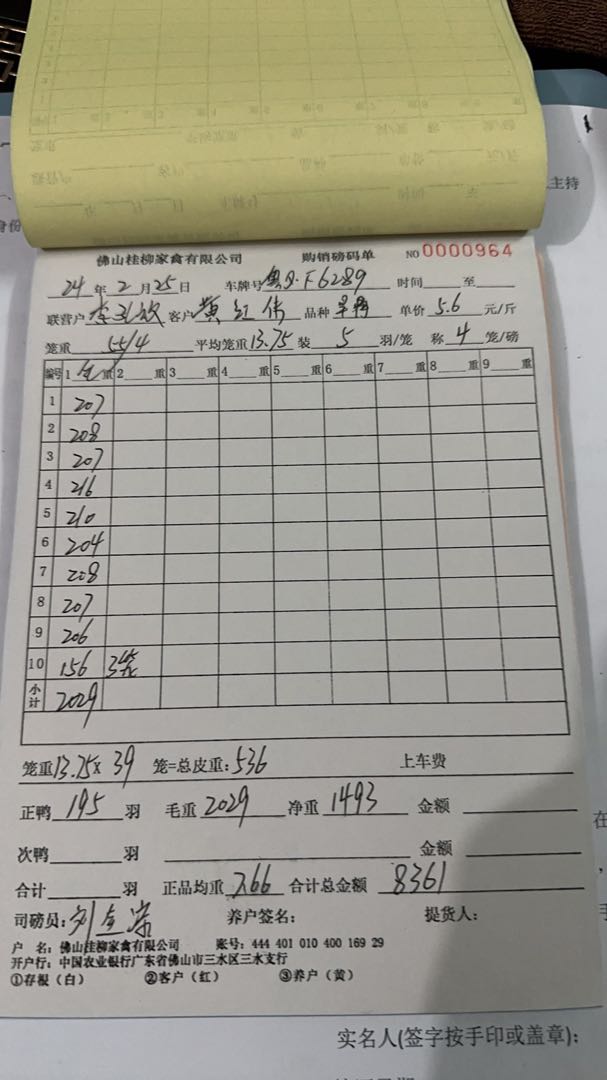 主持
身份
佛山桂柳家禽有限公司 购销磅码单 NO 0000964
24年2月25日 车牌号 F6289 时间 至
联营户 李 客户 黄红伟 品种 单价 5.6 元/斤
笼重 55/4 平均笼重 13.75 装 5 羽/笼 称 4 笼/磅
编号 1 毛重 2 重 3 重 4 重 5 重 6 重 7 重 8 重 9 重
1 207
2 208
3 207
4 216
5 210
6 204
7 208
8 207
9 206
10 156 3笼
小计 2029
笼重 13.75× 39 笼=总皮重: 536 上车费
正鸭 195 羽 毛重 2029 净重 1493 金额
次鸭 羽 金额
合计 羽 正品均重 7.66 合计总金额 8361
司磅员: 刘 养户签名: 提货人:
户 名: 佛山桂柳家禽有限公司 账号: 444 401 010 400 169 29
开户行: 中国农业银行广东省佛山市三水区三水支行
①存根（白） ②客户（红） ③养户（黄）
实名人(签字按手印或盖章):